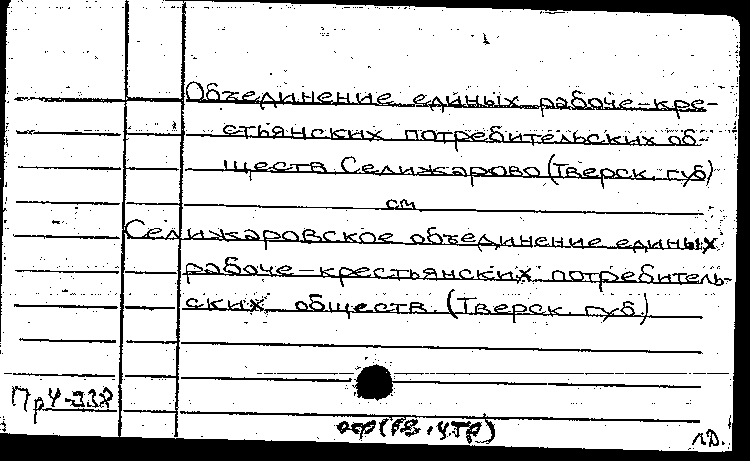 Объединение единых рабоче-кре-
стьянских потребительских об-
ществ. Селижарово (Тверск. губ)
см
Селижаровское объединение единых
рабоче-крестьянских потребитель-
ских обществ. (Тверск. губ.)
Пр4-338
л.д.